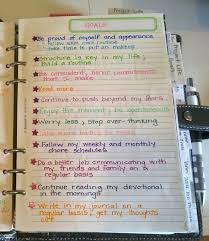 GOALS
Be proud of myself and appearance
* follow skin care routine
* take time to put on makeup
Structure is key in my life,
build a routine
Be consistent, build commitments
that I make
Read more
Continue to push beyond my fears
Enjoy the moment, be spontaneous
Worry less, stop over-thinking
Follow my weekly and monthly
chore schedules
Do a better job communicating with
my friends and family on a
regular basis
Continue reading my devotional
in the mornings
Write in my journal on a
regular basis, get my thoughts
out